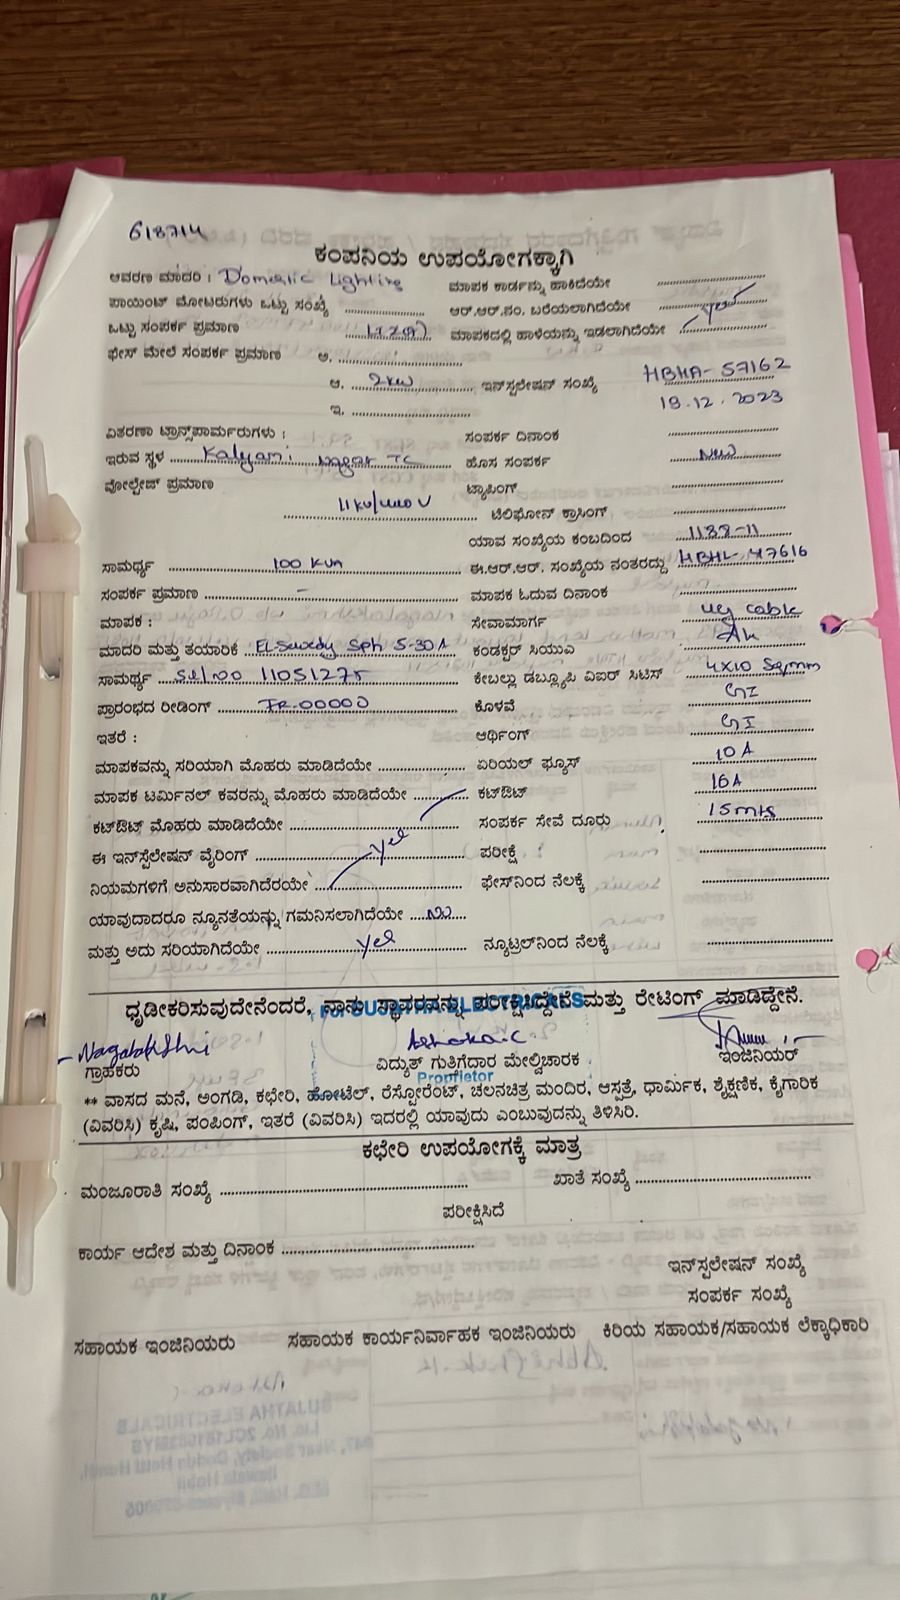 618714
ಕಂಪನಿಯ ಉಪಯೋಗಕ್ಕಾಗಿ
ಆವರಣ ಮಾದರಿ : Domestic Lighting ಮಾಪಕ ಕಾರ್ಡನ್ನು ಹಾಕಿದೆಯೇ
ಪಾಯಿಂಟ್ ಮೋಟರುಗಳು ಒಟ್ಟು ಸಂಖ್ಯೆ ಆರ್.ಆರ್.ನಂ. ಬರೆಯಲಾಗಿದೆಯೇ
ಒಟ್ಟು ಸಂಪರ್ಕ ಪ್ರಮಾಣ ಮಾಪಕದಲ್ಲಿ ಹಾಳೆಯನ್ನು ಇಡಲಾಗಿದೆಯೇ
ಫೇಸ್ ಮೇಲೆ ಸಂಪರ್ಕ ಪ್ರಮಾಣ ಅ.
ಆ. 2kw ಇನ್‌ಸ್ಪಲೇಷನ್ ಸಂಖ್ಯೆ HBHA-57162
ಇ. 19.12.2023
ವಿತರಣಾ ಟ್ರಾನ್ಸ್‌ಪಾರ್ಮರುಗಳು : ಸಂಪರ್ಕ ದಿನಾಂಕ
ಇರುವ ಸ್ಥಳ Kalyani nagar TC ಹೊಸ ಸಂಪರ್ಕ New
ವೋಲ್ಟೇಜ್ ಪ್ರಮಾಣ ಟ್ಯಾಪಿಂಗ್
11kv/ ಟೆಲಿಫೋನ್ ಕ್ರಾಸಿಂಗ್
ಯಾವ ಸಂಖ್ಯೆಯ ಕಂಬದಿಂದ 1138-11
ಸಾಮರ್ಥ್ಯ 100 KVA ಈ.ಆರ್.ಆರ್. ಸಂಖ್ಯೆಯ ನಂತರದ್ದು HBHL-47616
ಸಂಪರ್ಕ ಪ್ರಮಾಣ - ಮಾಪಕ ಓದುವ ದಿನಾಂಕ
ಮಾಪಕ : ಸೇವಾಮಾರ್ಗ ug cable
ಮಾದರಿ ಮತ್ತು ತಯಾರಿಕೆ ElSewedy Sph 5-30A ಕಂಡಕ್ಟರ್ ಸಿಯುಎ
ಸಾಮರ್ಥ್ಯ Sl no 11051275 ಕೇಬಲ್ಲು ಡಬ್ಲ್ಯೂಪಿ ವಿಐರ್ ಸಿಟಿಸ್ 4x10 Sqmm
ಪ್ರಾರಂಭದ ರೀಡಿಂಗ್ FR-00000 ಕೊಳವೆ GI
ಇತರೆ : ಆರ್ಥಿಂಗ್ GI
ಮಾಪಕವನ್ನು ಸರಿಯಾಗಿ ಮೊಹರು ಮಾಡಿದೆಯೇ ಏರಿಯಲ್ ಫ್ಯೂಸ್ 10A
ಮಾಪಕ ಟರ್ಮಿನಲ್ ಕವರನ್ನು ಮೊಹರು ಮಾಡಿದೆಯೇ ಕಟ್‌ಔಟ್ 16A
ಕಟ್‌ಔಟ್ ಮೊಹರು ಮಾಡಿದೆಯೇ ಸಂಪರ್ಕ ಸೇವೆ ದೂರು 15mts
ಈ ಇನ್‌ಸ್ಪೆಲೇಷನ್ ವೈರಿಂಗ್ yes ಪರೀಕ್ಷೆ
ನಿಯಮಗಳಿಗೆ ಅನುಸಾರವಾಗಿದೆರಯೇ ಫೇಸ್‌ನಿಂದ ನೆಲಕ್ಕೆ
ಯಾವುದಾದರೂ ನ್ಯೂನತೆಯನ್ನು ಗಮನಿಸಲಾಗಿದೆಯೇ No
ಮತ್ತು ಅದು ಸರಿಯಾಗಿದೆಯೇ yes ನ್ಯೂಟ್ರಲ್‌ನಿಂದ ನೆಲಕ್ಕೆ
ಧೃಡೀಕರಿಸುವುದೇನೆಂದರೆ, ನಾನು ಸ್ಥಾವರವನ್ನು ಪರೀಕ್ಷಿಸಿದ್ದೇನೆ ಮತ್ತು ರೇಟಿಂಗ್ ಮಾಡಿದ್ದೇನೆ.
For SUJATHA ELECTRICALS
Nagalakshmi Ashoka.C
ಗ್ರಾಹಕರು ವಿದ್ಯುತ್ ಗುತಿಗೆದಾರ ಮೇಲ್ವಿಚಾರಕ ಇಂಜಿನಿಯರ್
Proprietor
** ವಾಸದ ಮನೆ, ಅಂಗಡಿ, ಕಛೇರಿ, ಹೋಟೆಲ್, ರೆಸ್ಟೋರೆಂಟ್, ಚಲನಚಿತ್ರ ಮಂದಿರ, ಆಸ್ಪತ್ರೆ, ಧಾರ್ಮಿಕ, ಶೈಕ್ಷಣಿಕ, ಕೈಗಾರಿಕ
(ವಿವರಿಸಿ) ಕೃಷಿ, ಪಂಪಿಂಗ್, ಇತರೆ (ವಿವರಿಸಿ) ಇದರಲ್ಲಿ ಯಾವುದು ಎಂಬುವುದನ್ನು ತಿಳಿಸಿರಿ.
ಕಛೇರಿ ಉಪಯೋಗಕ್ಕೆ ಮಾತ್ರ
ಮಂಜೂರಾತಿ ಸಂಖ್ಯೆ ಖಾತೆ ಸಂಖ್ಯೆ
ಪರೀಕ್ಷಿಸಿದೆ
ಕಾರ್ಯ ಆದೇಶ ಮತ್ತು ದಿನಾಂಕ
ಇನ್‌ಸ್ಪಲೇಷನ್ ಸಂಖ್ಯೆ
ಸಂಪರ್ಕ ಸಂಖ್ಯೆ
ಸಹಾಯಕ ಇಂಜಿನಿಯರು ಸಹಾಯಕ ಕಾರ್ಯನಿರ್ವಾಹಕ ಇಂಜಿನಿಯರು ಕಿರಿಯ ಸಹಾಯಕ/ಸಹಾಯಕ ಲೆಕ್ಕಾಧಿಕಾರಿ